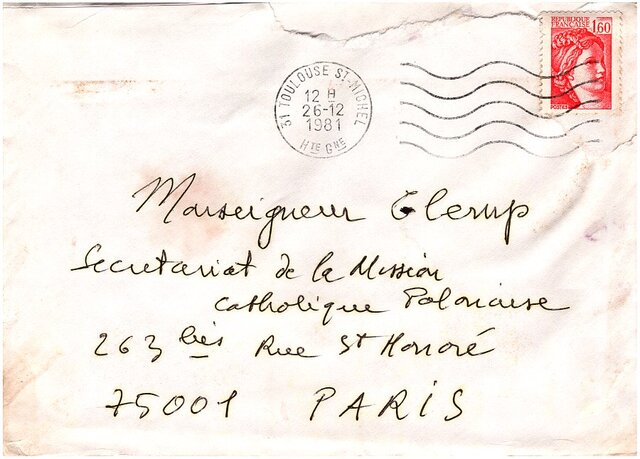 REPUBLIQUE
FRANÇAISE 1,60
31 TOULOUSE ST-MICHEL
12 H
26-12
1981
HTE GNE
Monseigneur
Secretariat de la Mission
catholique Polonaise
263 bis Rue St Honoré
75001 PARIS